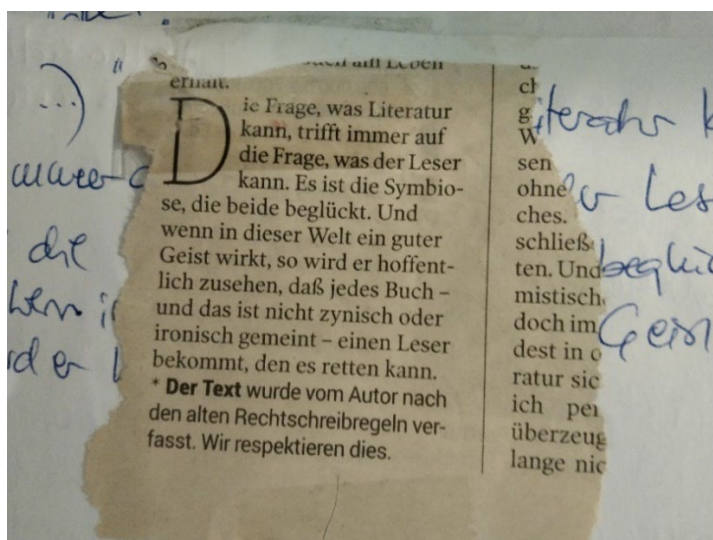 am Leben
erhält.
Die Frage, was Literatur
kann, trifft immer auf
die Frage, was der Leser
kann. Es ist die Symbio-
se, die beide beglückt. Und
wenn in dieser Welt ein guter
Geist wirkt, so wird er hoffent-
lich zusehen, daß jedes Buch –
und das ist nicht zynisch oder
ironisch gemeint – einen Leser
bekommt, den es retten kann.
* Der Text wurde vom Autor nach
den alten Rechtschreibregeln ver-
fasst. Wir respektieren dies.
ch
g
W
sen
ohne
ches.
schließ
ten. Und
mistisch
doch im
dest in
ratur sic
ich per
überzeug
lange nic
(...)
die
Les
beglü
Geis